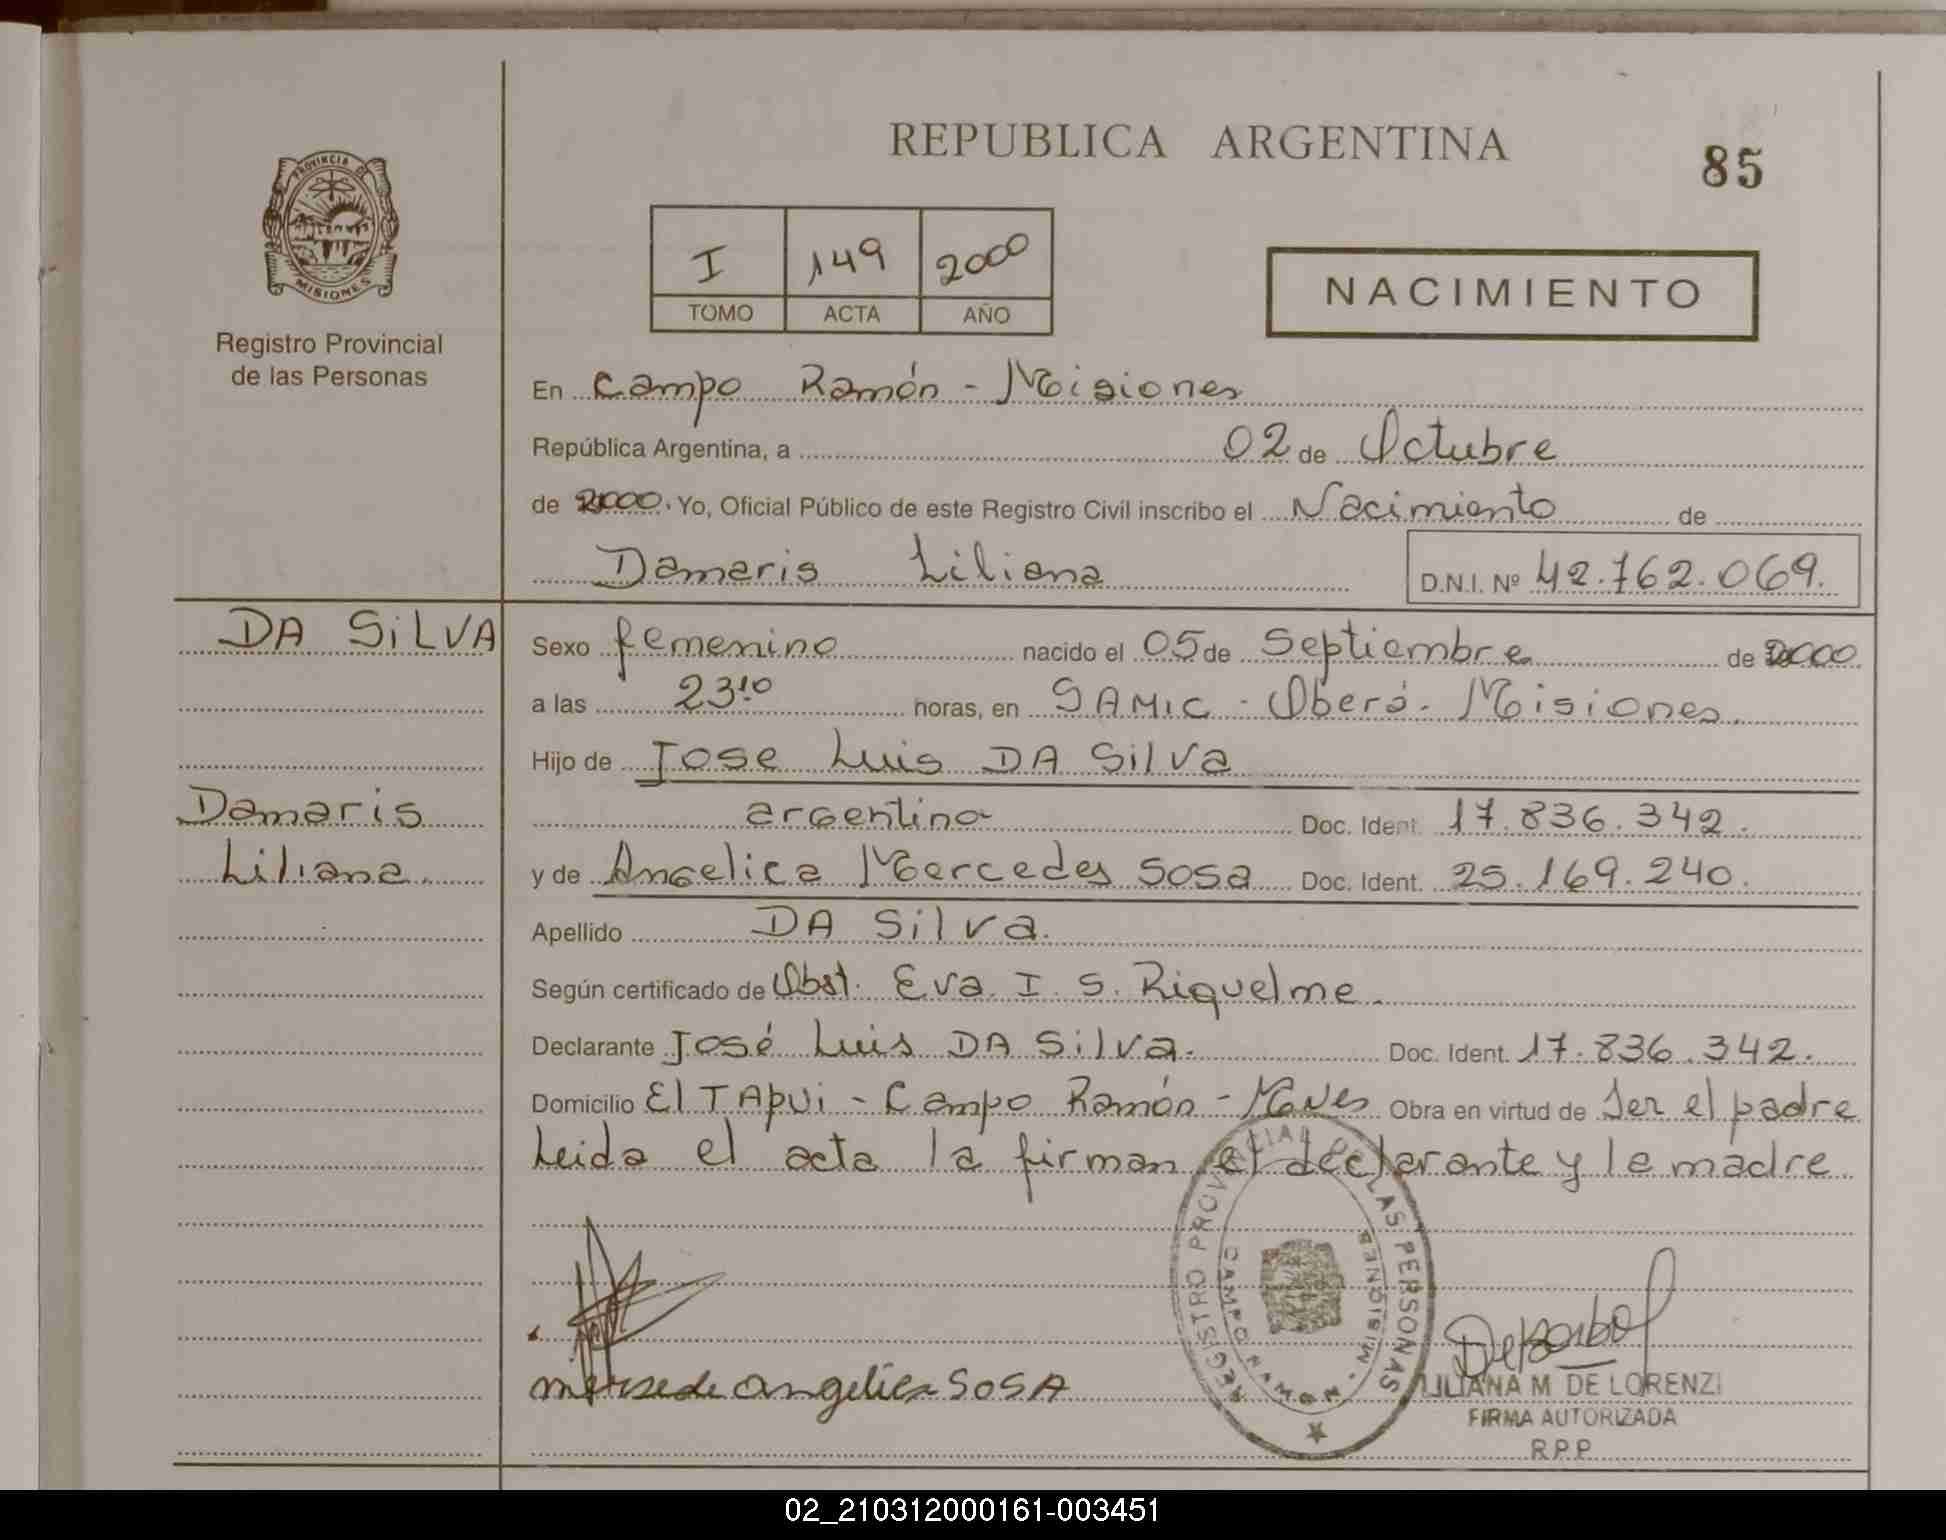 REPUBLICA ARGENTINA
85
PROVINCIA DE
MISIONES
Registro Provincial
de las Personas
I 149 2000
TOMO ACTA AÑO
NACIMIENTO
En Campo Ramón - Misiones
República Argentina, a 02 de Octubre
de 2000. Yo, Oficial Público de este Registro Civil inscribo el Nacimiento de
Damaris Liliana D.N.I. Nº 42.762.069.
DA SiLVA
Damaris
Liliana
Sexo femenino nacido el 05 de Septiembre de 2000
a las 23:10 horas, en SAMIC - Oberá - Misiones.
Hijo de Jose Luis DA Silva
argentina Doc. Ident. 17.836.342.
y de Angelica Mercedes Sosa Doc. Ident. 25.169.240.
Apellido DA Silva.
Según certificado de Obst. Eva I. S. Riquelme.
Declarante José Luis DA Silva. Doc. Ident. 17.836.342.
Domicilio El TApui - Campo Ramón - Mnes Obra en virtud de Ser el padre
Leida el acta la firman el declarante y la madre
REGISTRO PROVINCIAL DE LAS PERSONAS
CAMPO RAMON - MISIONES
mersede angelica SOSA
LILIANA M DE LORENZI
FIRMA AUTORIZADA
R.P.P
02_210312000161-003451